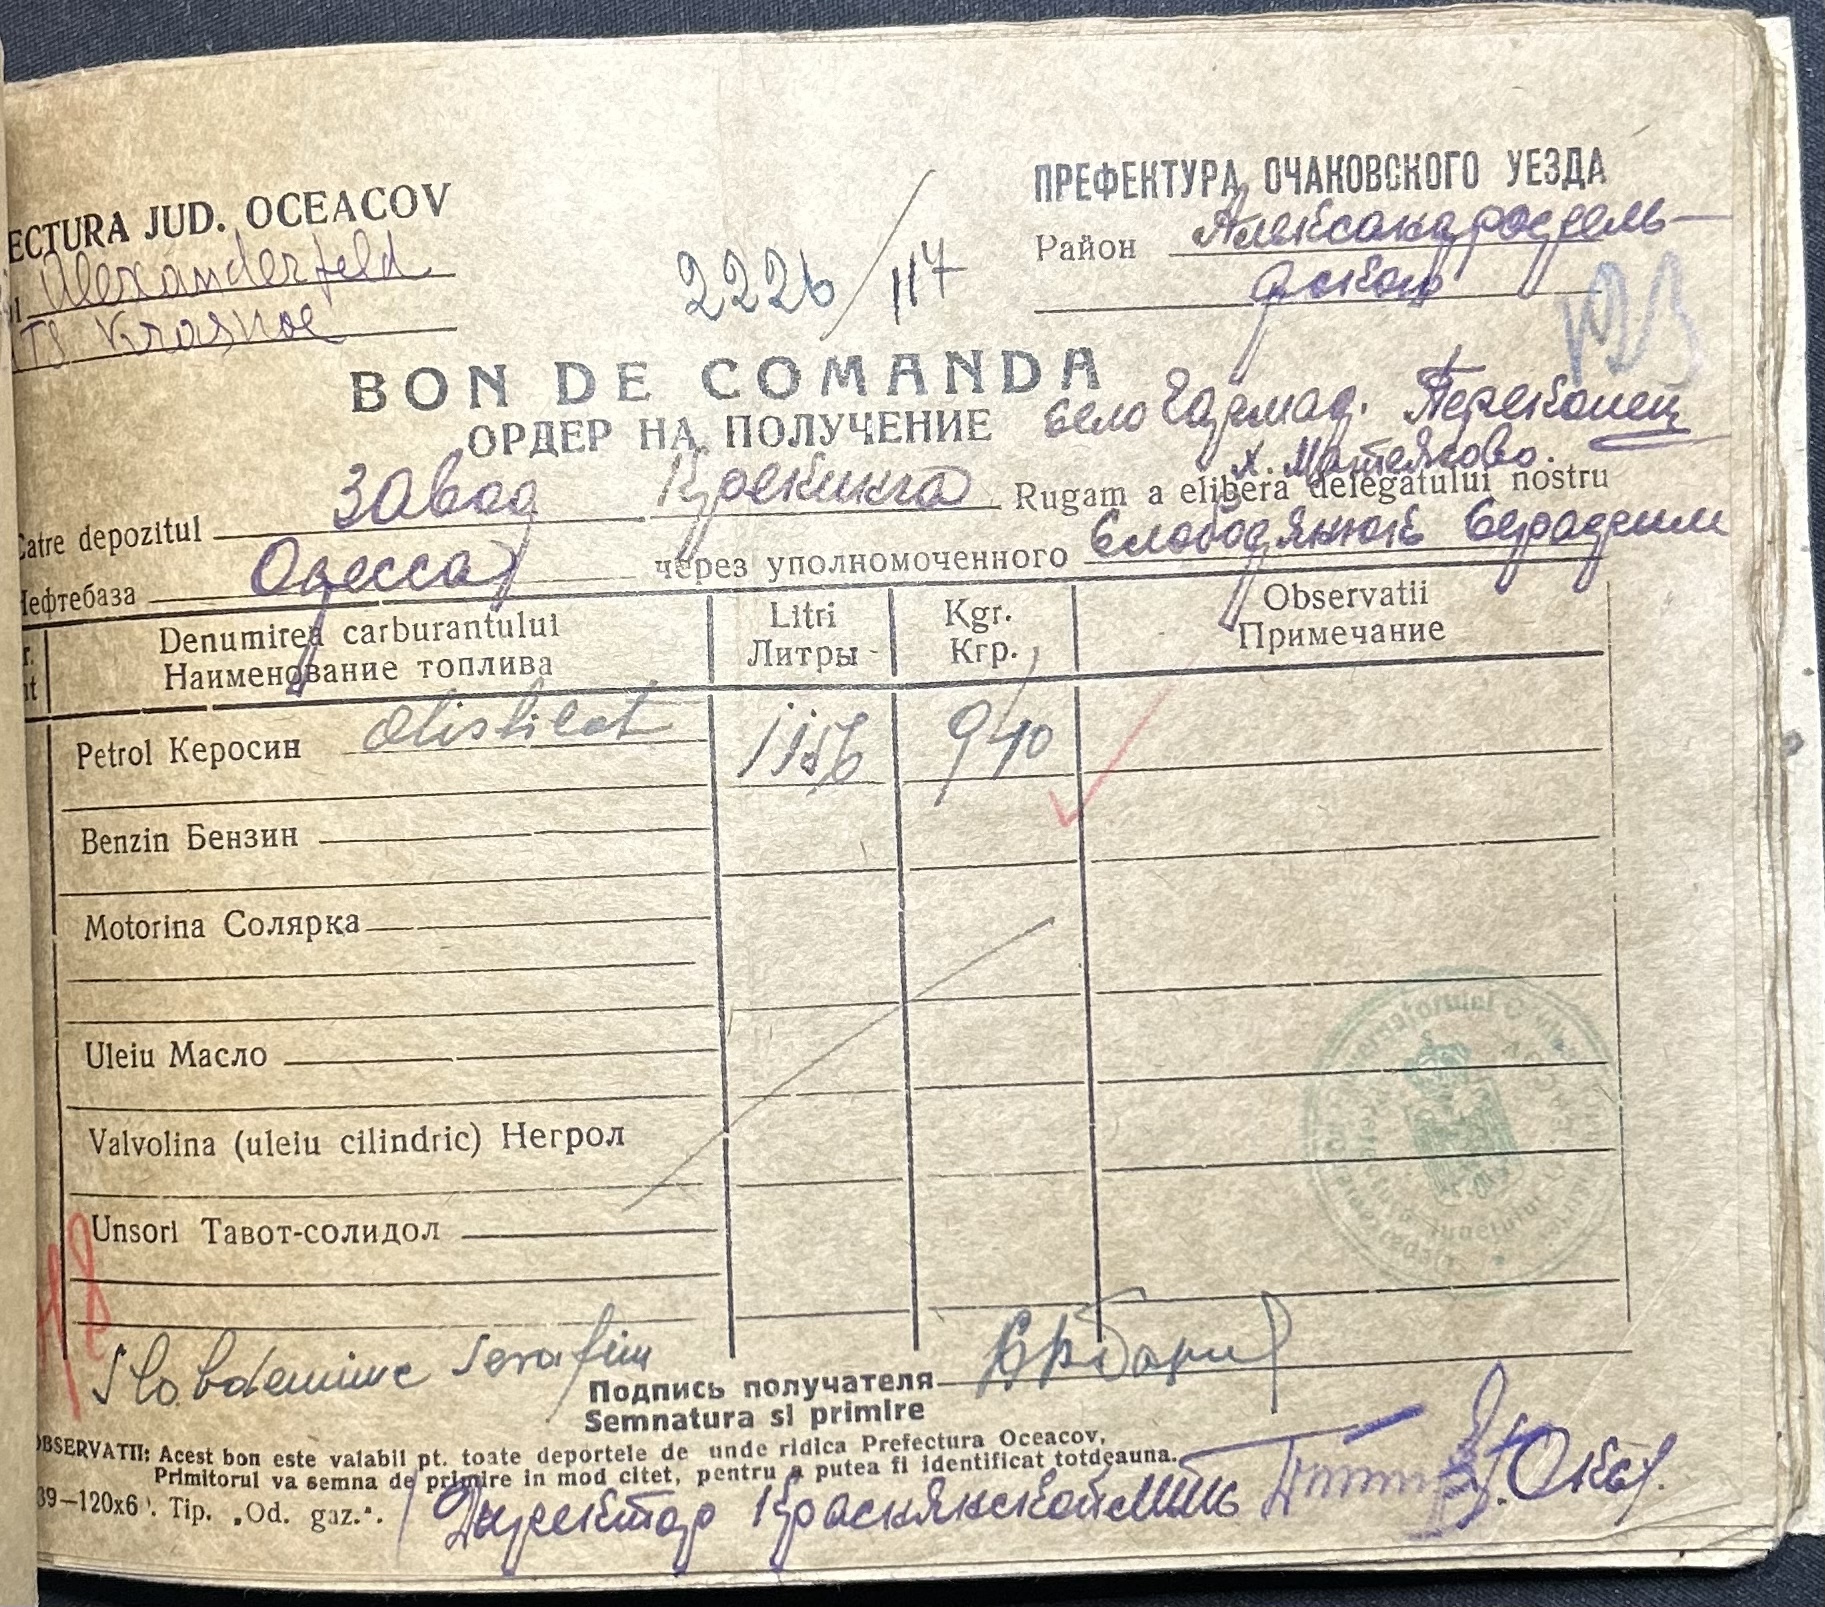 ECTURA JUD. OCEACOV
Alexanderfeld
Krasnoe
2226/117
ПРЕФЕКТУРА ОЧАКОВСКОГО УЕЗДА
Район Александрфель-
дской
BON DE COMANDA
ОРДЕР НА ПОЛУЧЕНИЕ
село Перекопец
Catre depozitul Завод Крекинга Rugam a elibera delegatului nostru
Нефтебаза Одесса через уполномоченного Слободянюк Серафим
Denumirea carburantului Litri Kgr. Observatii
Наименование топлива Литры Кгр. Примечание
Petrol Керосин distilat 1156 940
Benzin Бензин
Motorina Солярка
Uleiu Масло
Valvolina (uleiu cilindric) Негрол
Unsori Тавот-солидол
Serafim
Подпись получателя
Semnatura si primire
OBSERVATII: Acest bon este valabil pt. toate deportele de unde ridica Prefectura Oceacov,
Primitorul va semna de primire in mod citet, pentru a putea fi identificat totdeauna.
39—120x6 . Tip. „Od. gaz.“.
Директор Краснянской